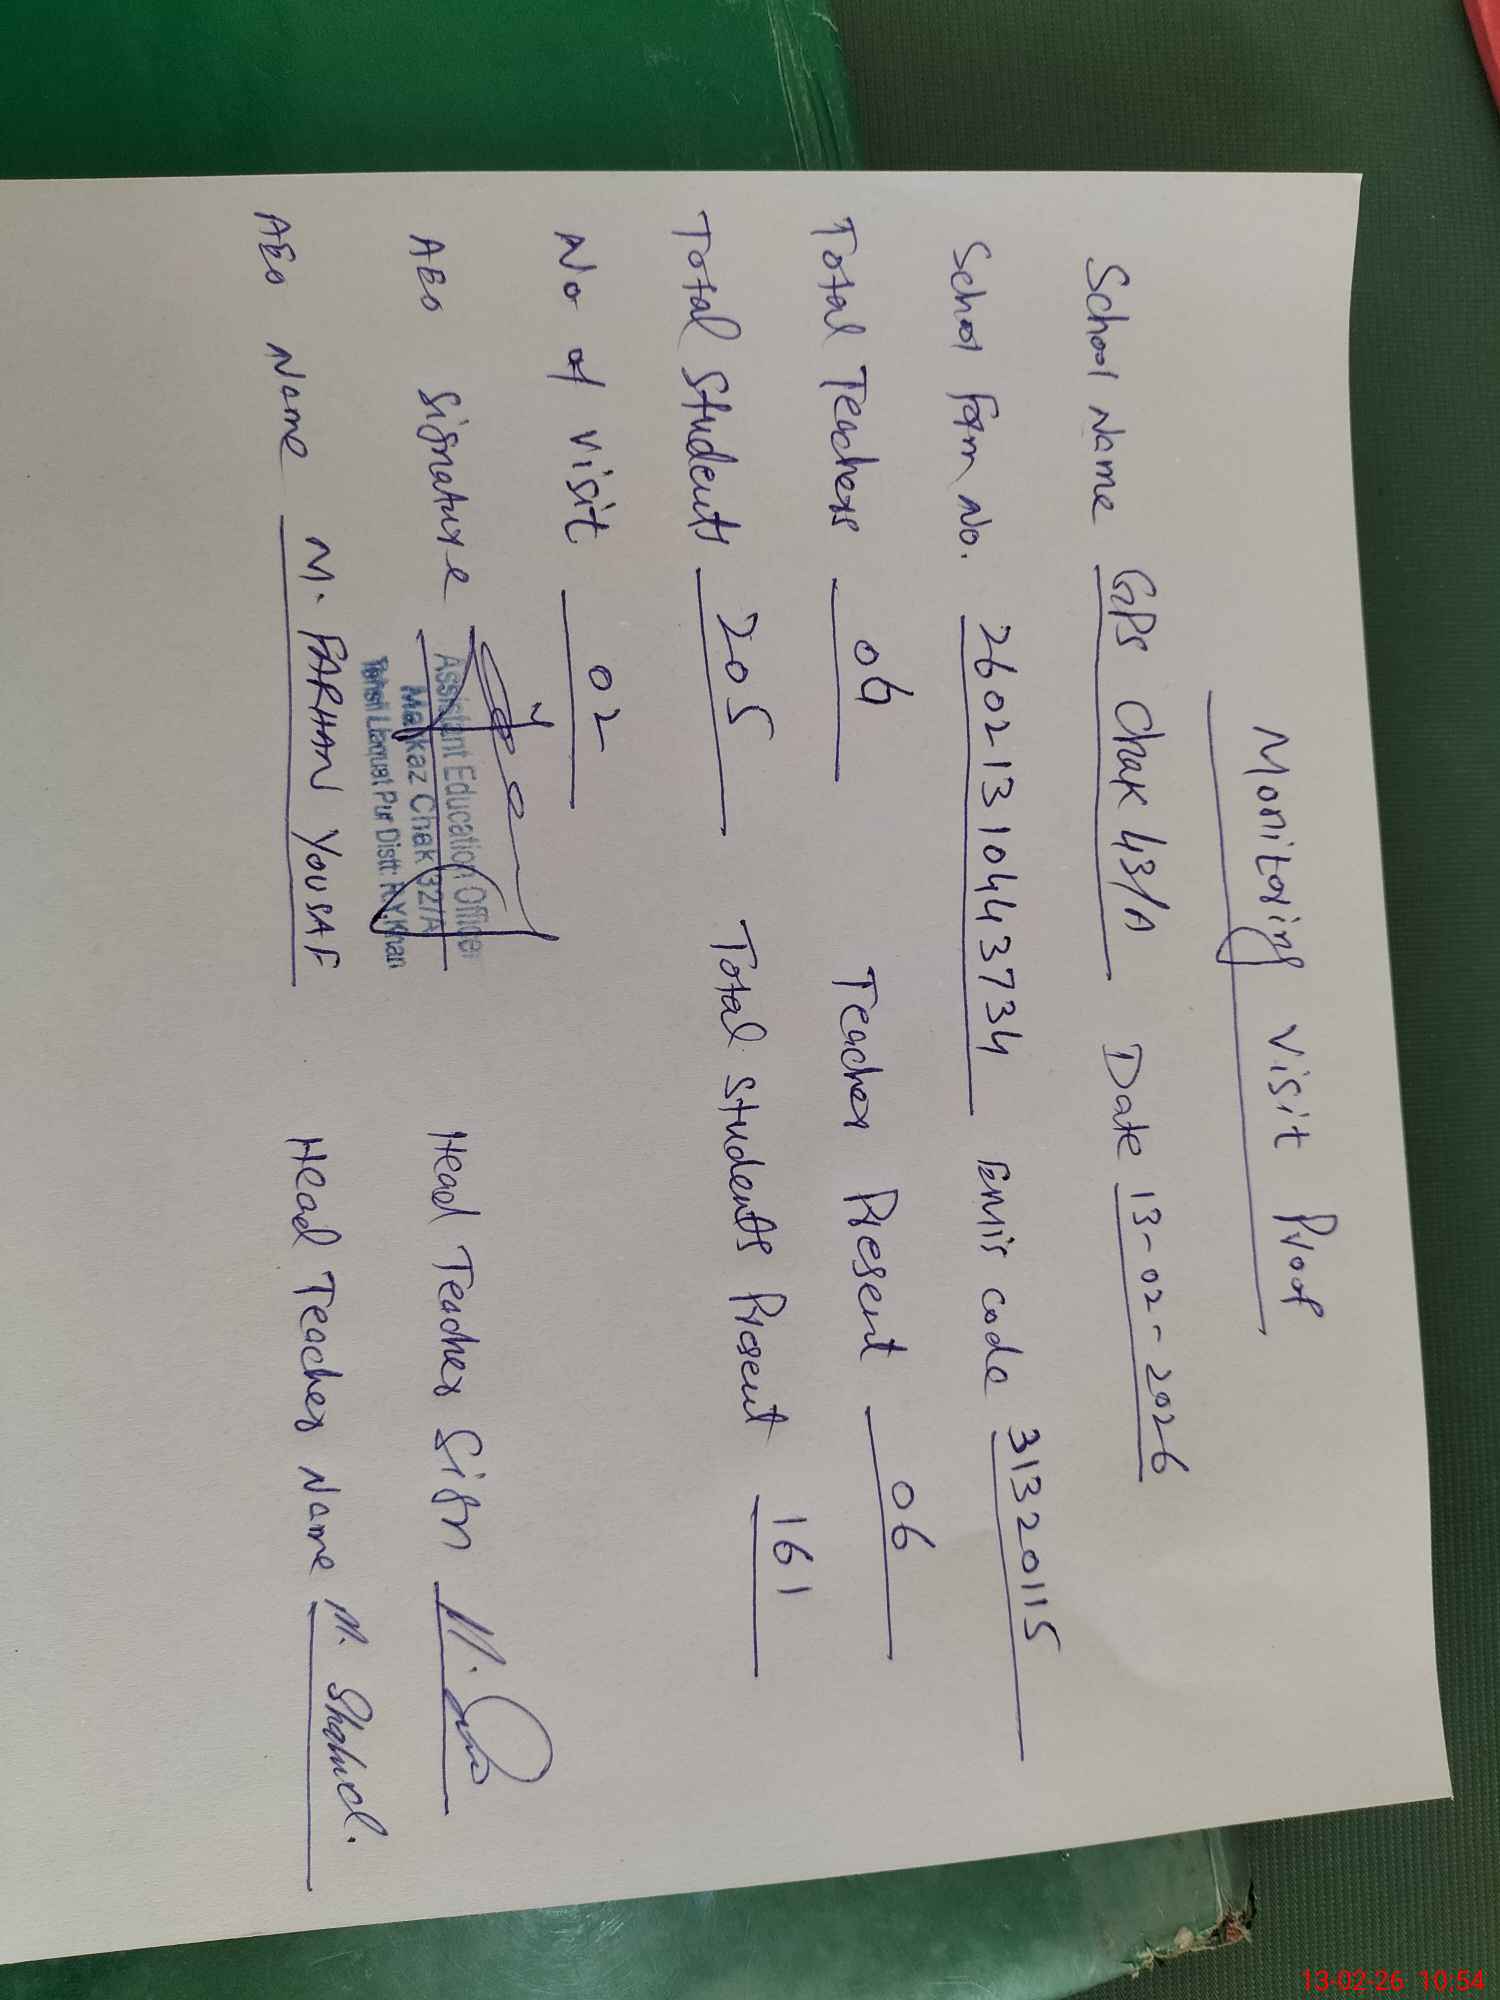 Monitoring Visit Proof
School Name GPS Chak 43/A Date 13-02-2026
School Farm No. 26021310443734 Emis code 31320115
Total Teachers 06 Teacher Present 06
Total Students 205 Total Students Present 161
No of Visit 02
AEO Signature Head Teacher Sign
Assistant Education Officer
Markaz Chak 32/A
Tehsil Liaquat Pur Distt: R.Y.Khan
AEO Name M. FARHAN YOUSAF Head Teacher Name M. Shahid.
13-02-26 10:54